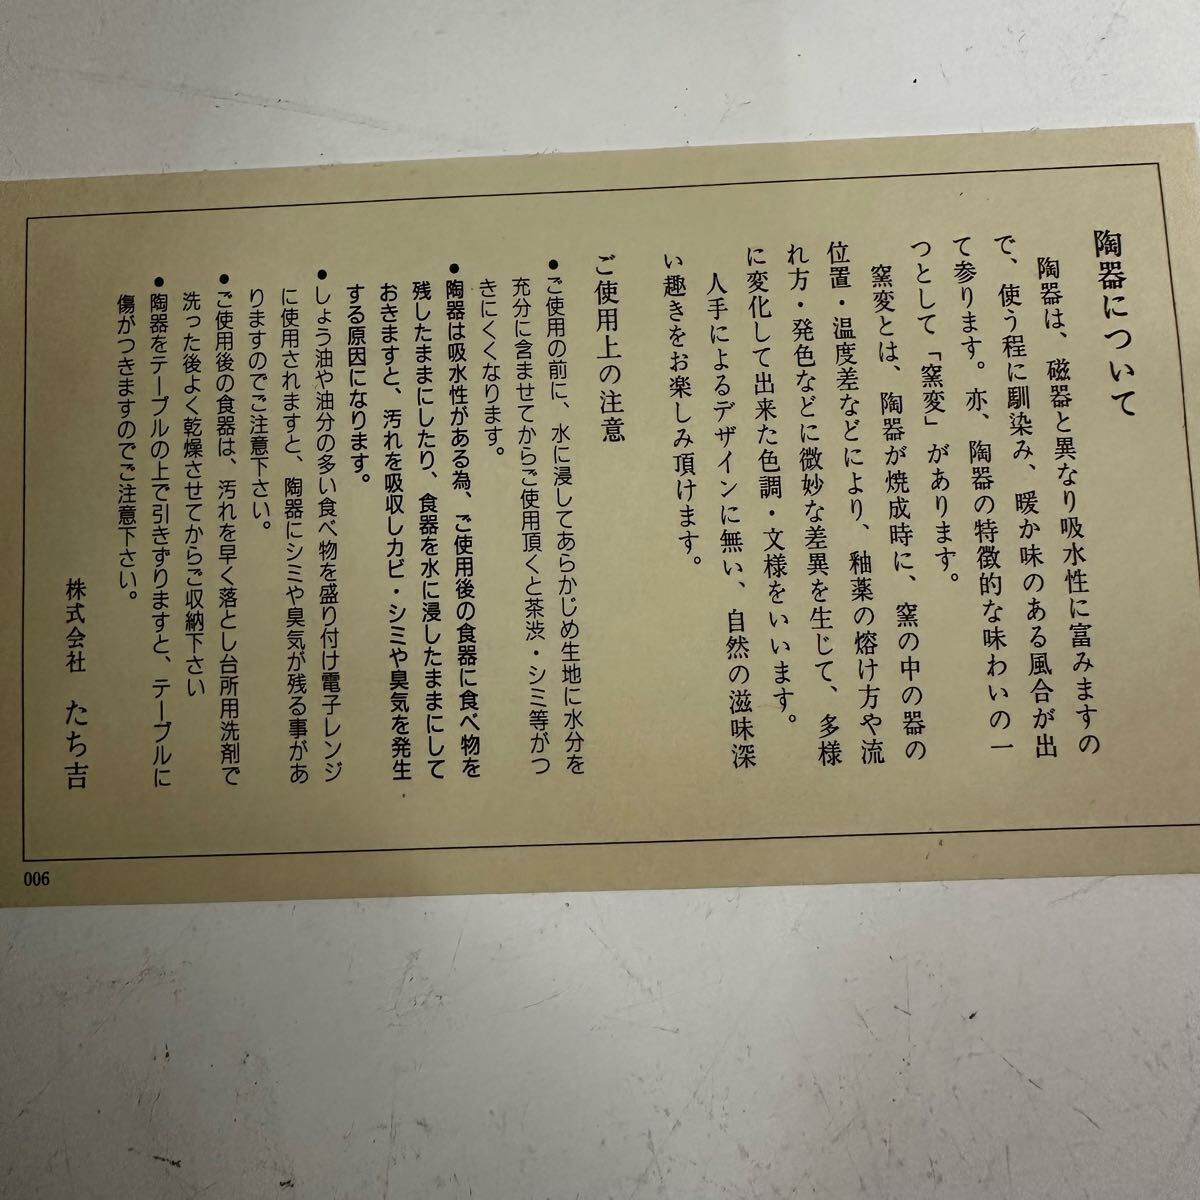 陶器について
陶器は、磁器と異なり吸水性に富みますの
で、使う程に馴染み、暖か味のある風合が出
て参ります。亦、陶器の特徴的な味わいの一
つとして「窯変」があります。
窯変とは、陶器が焼成時に、窯の中の器の
位置・温度差などにより、釉薬の熔け方や流
れ方・発色などに微妙な差異を生じて、多様
に変化して出来た色調・文様をいいます。
人手によるデザインに無い、自然の滋味深
い趣きをお楽しみ頂けます。
ご使用上の注意
●ご使用の前に、水に浸してあらかじめ生地に水分を
充分に含ませてからご使用頂くと茶渋・シミ等がつ
きにくくなります。
●陶器は吸水性がある為、ご使用後の食器に食べ物を
残したままにしたり、食器を水に浸したままにして
おきますと、汚れを吸収しカビ・シミや臭気を発生
する原因になります。
●しょう油や油分の多い食べ物を盛り付け電子レンジ
に使用されますと、陶器にシミや臭気が残る事があ
りますのでご注意下さい。
●ご使用後の食器は、汚れを早く落とし台所用洗剤で
洗った後よく乾燥させてからご収納下さい
●陶器をテーブルの上で引きずりますと、テーブルに
傷がつきますのでご注意下さい。
株式会社 たち吉
006